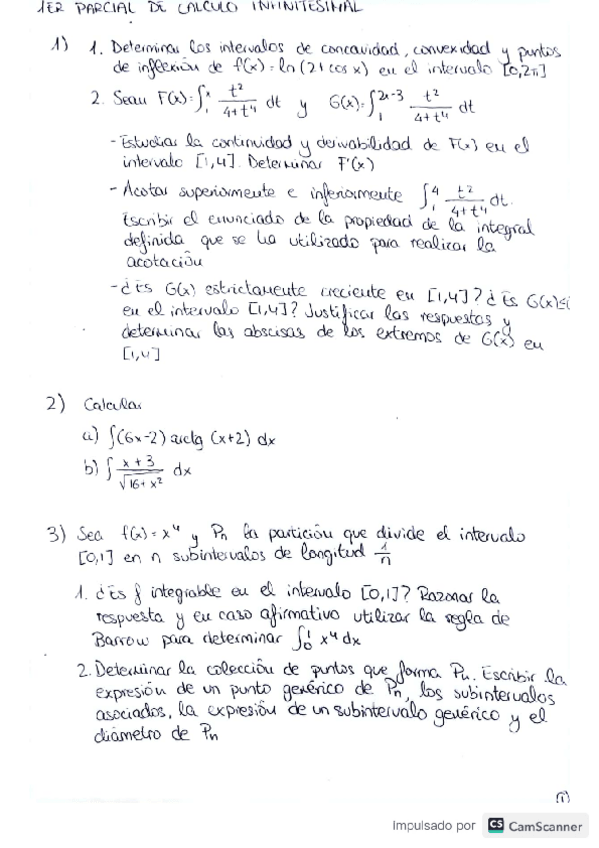 1ER PARCIAL DE CALCULO INFINITESIMAL
1) 1. Determinar los intervalos de concavidad, convexidad y puntos
de inflexión de f(x)=ln(2+cos x) en el intervalo [0,2π]
2. Sean F(x)=∫₁ˣ t²/(4+t⁴) dt y G(x)=∫₁²ˣ⁻³ t²/(4+t⁴) dt
-Estudiar la continuidad y derivabilidad de F(x) en el
intervalo [1,4]. Determinar F'(x)
-Acotar superiormente e inferiormente ∫₁⁴ t²/(4+t⁴) dt.
Escribir el enunciado de la propiedad de la integral
definida que se ha utilizado para realizar la
acotación
-¿Es G(x) estrictamente creciente en [1,4]? ¿Es G(x)≤
en el intervalo [1,4]? Justificar las respuestas y
determinar las abscisas de los extremos de G(x) en
[1,4]
2) Calcular
a) ∫(6x-2) arctg (x+2) dx
b) ∫ (x+3)/√(16+x²) dx
3) Sea f(x)=x⁴ y Pn la partición que divide el intervalo
[0,1] en n subintervalos de longitud 1/n
1. ¿Es f integrable en el intervalo [0,1]? Razonar la
respuesta y en caso afirmativo utilizar la regla de
Barrow para determinar ∫₀¹ x⁴ dx
2. Determinar la colección de puntos que forma Pn. Escribir la
expresión de un punto genérico de Pn, los subintervalos
asociados, la expresión de un subintervalo genérico y el
diámetro de Pn
(1)
Impulsado por CS CamScanner